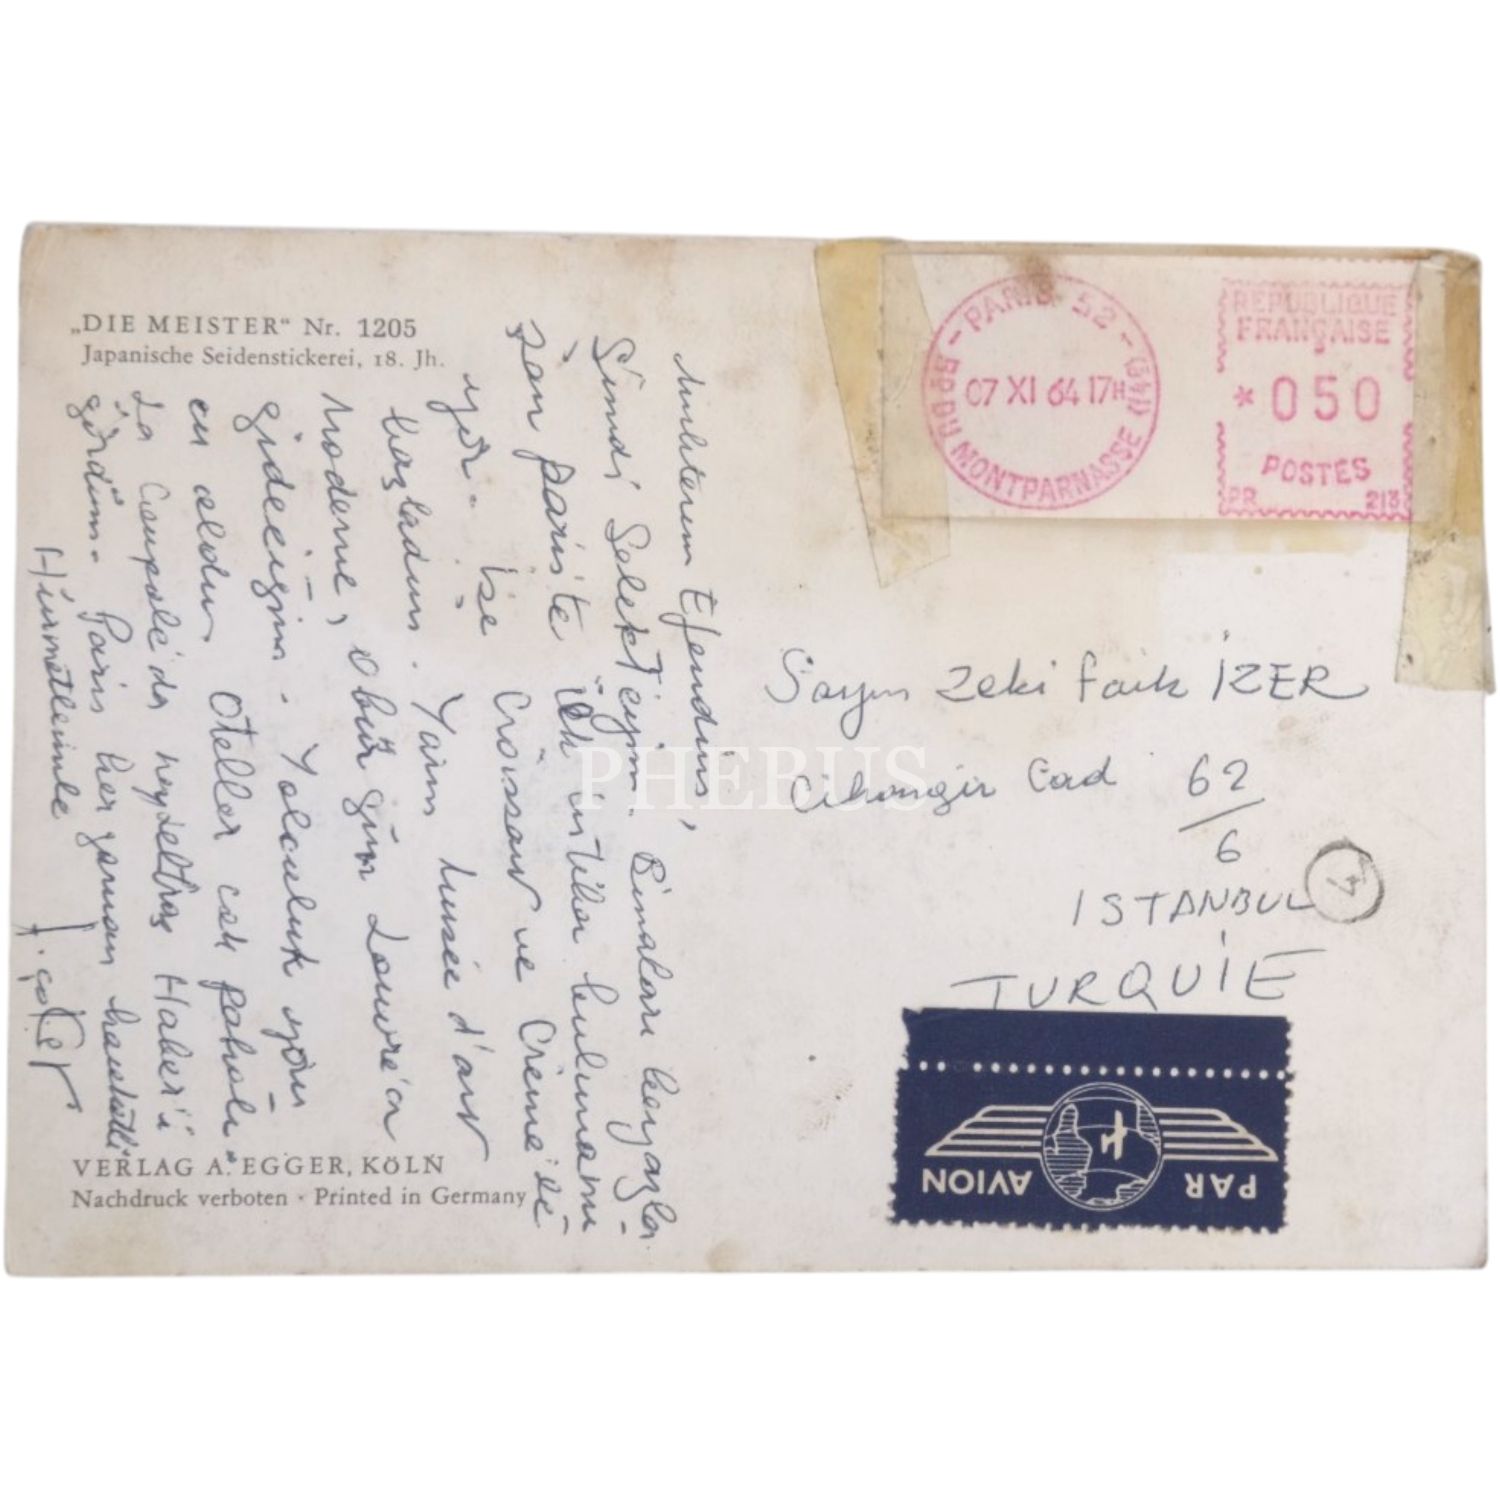 „DIE MEISTER“ Nr. 1205
Japanische Seidenstickerei, 18. Jh.
Muhterem Efendim,
Şimdi Select'eyim. Binaları beyazla-
ilk intibaı bulmamı
zan Paris'te
yor. İse Croissant ve Crème'le
başladım. Yarın Musée d'art
Moderne, öbür gün Louvre'a
gideceğim. Yolculuk yorgun
oldu. Oteller çok pahalı.
La Coupole'da heykeltraş Haker'i
gördüm. Paris her zaman hareketli.
Hürmetlerimle
VERLAG A. EGGER, KÖLN
Nachdruck verboten · Printed in Germany
PARIS 52
BD DU MONTPARNASSE
07 XI 64 17H
REPUBLIQUE
FRANÇAISE
* 050
POSTES
PR 213
Sayın Zeki Faik İZER
Cihangir Cad 62
6
ISTANBUL
TURQUIE
PAR AVION
PHEBUS